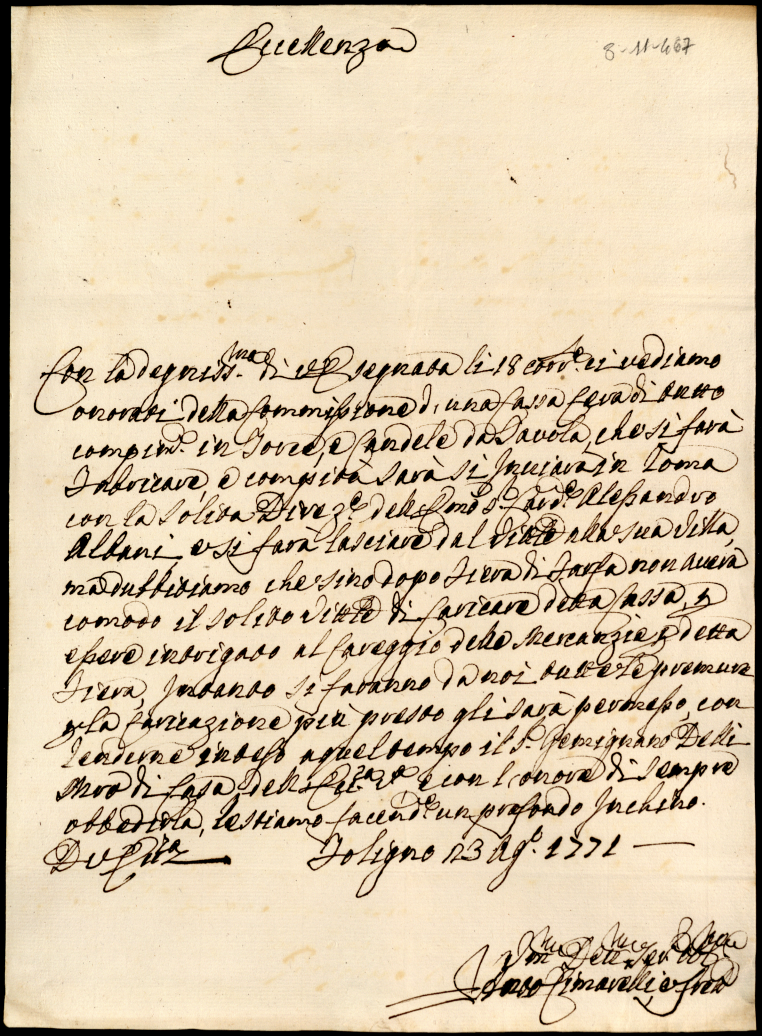 Eccellenza
8-11-467
Con la degniss.ma di VE segnata li 18 corr.e ci vediamo
onorati della Commissione di una Cassa Cera di tutto
compim.to in Torce, e Candele da Tavola, che si farà
Fabricare, e compita sarà si Inviarà in Roma
con la solita Direz.e dell'Emo S.r Card.e Alessandro
Albani, e si farà lasciare dal Vitt.le alla sua Villa,
ma dubbitiamo che sino dopo Fiera di Farfa non averà
comodo il solito Vitt.le di Caricare detta Cassa, p
essere intrigato al Careggio delle Mercanzie p detta
Fiera, Intanto si faranno da noi tutte le premure
p la Caricazione più presto gli sarà permesso, con
renderne inteso a quel tempo il S.r Gemignano Delli
Mro di Casa dell'Ecc.za V.a e con l'onore di sempre
obbedirla, restiamo facend.e un profondo Inchino.
D V Ecc.za Foligno 23 Ag.o 1771
Um.mi Dev.mi Ser.i Obb.mi
Cimarelli, e Frat.